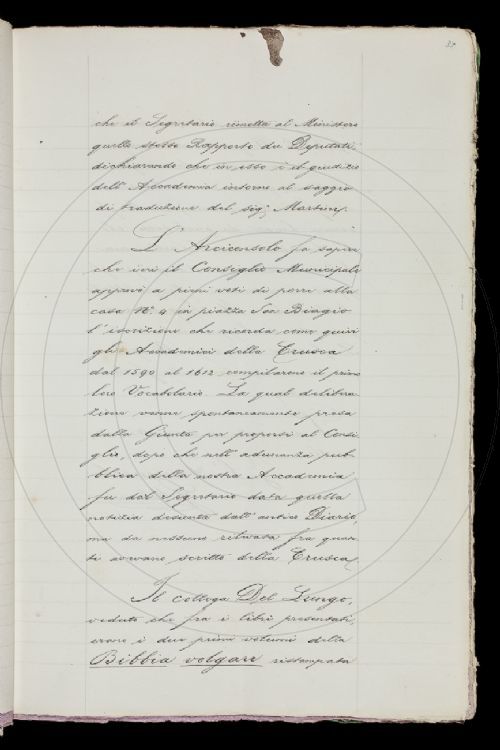 che il Segretario rimetta al Ministero
quello stesso Rapporto de' Deputati,
dichiarando che in esso è il giudizio
dell'Accademia intorno al saggio
di traduzione del sig.
L'Arciconsolo fa sapere
che ieri il Consiglio Municipale
approvò a pieni voti di porre alla
casa N.° 4 in piazza San Biagio
l'iscrizione che ricorda come quivi
gli Accademici della Crusca
dal 1590 al 1612 compilarono il primo
loro Vocabolario. La qual delibera-
zione venne spontaneamente presa
dalla Giunta per proporsi al Consi-
glio, dopo che nell'adunanza pub-
blica della nostra Accademia
fu dal Segretario data quella
notizia desunta dall'antico Diario,
ma da nessuno rilevata fra quan-
ti aveano scritto della Crusca.
Il collega Del Lungo,
veduto che fra i libri presentati,
erano i due primi volumi della
Bibbia volgare ristampata